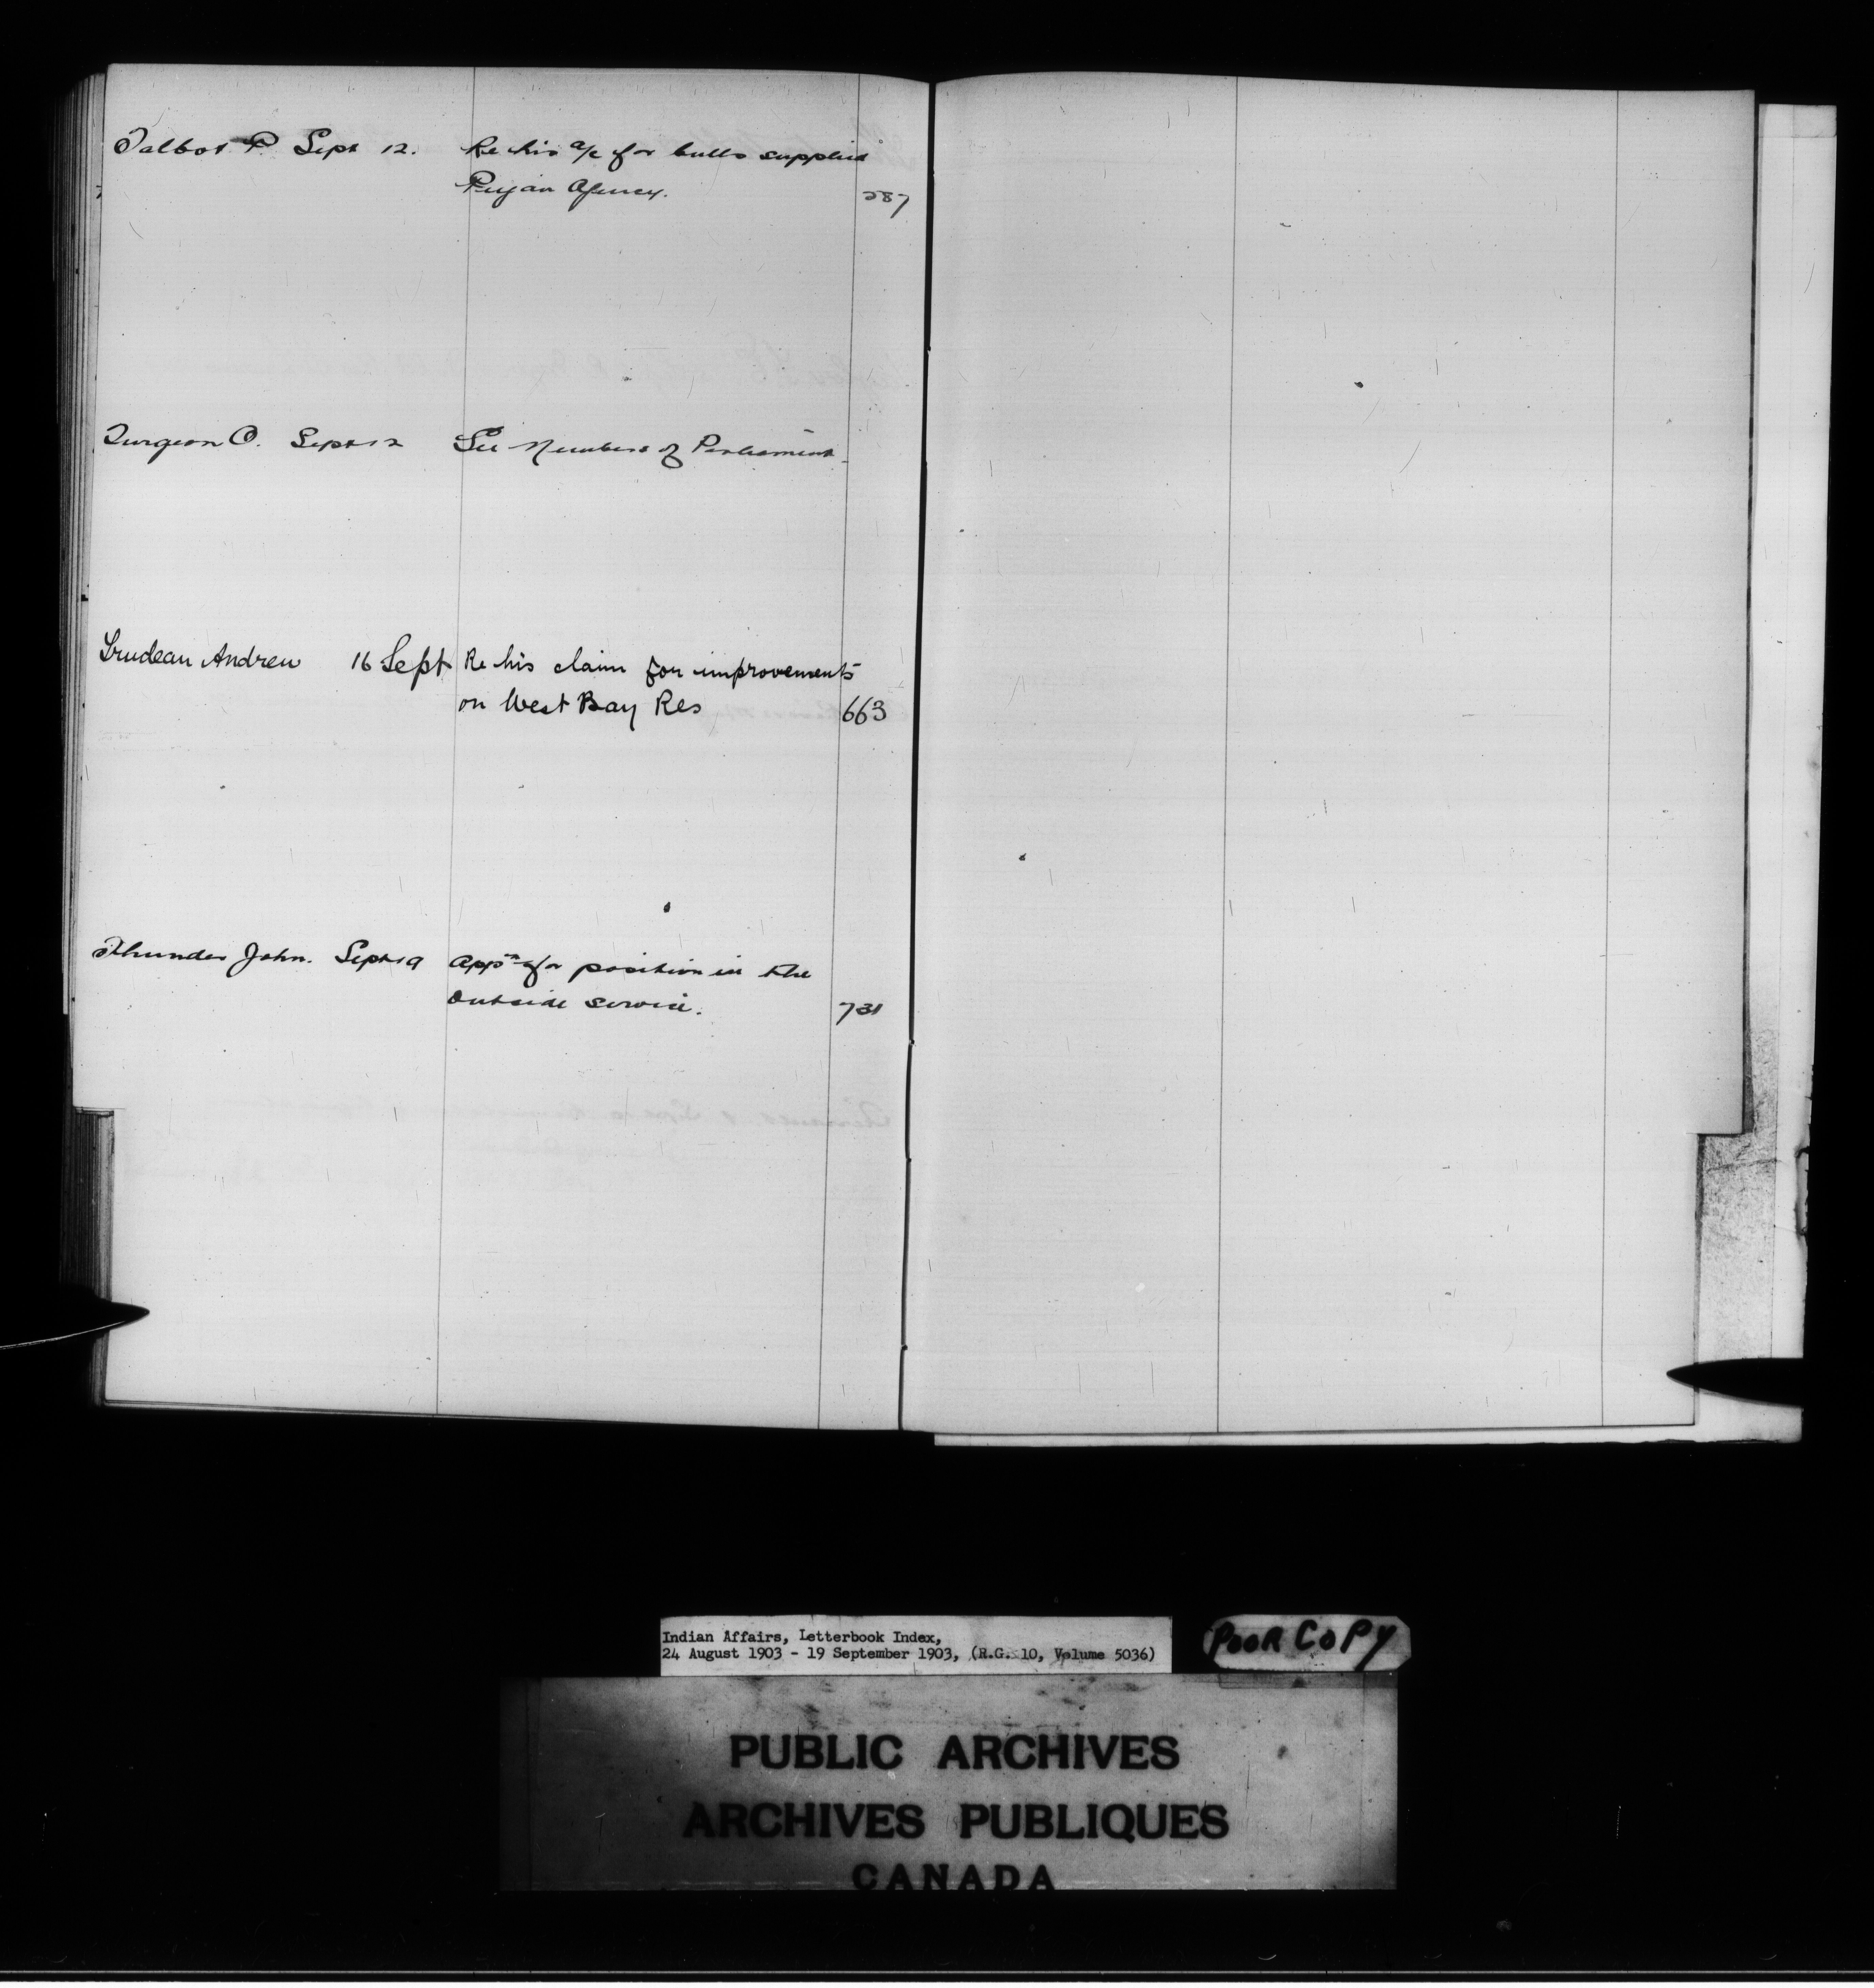 Talbot P. Sept 12. Re his a/c for bulls supplied
Agency. 587
Turgeon O. Sept 12 See Members of Parliament.
Trudeau Andrew 16 Sept Re his claim for improvements
on West Bay Res 663
Thunder John. Sept 19 Appn for position in the
outside service. 731
Indian Affairs, Letterbook Index,
24 August 1903 - 19 September 1903, (R.G. 10, Volume 5036)
POOR COPY
PUBLIC ARCHIVES
ARCHIVES PUBLIQUES
CANADA